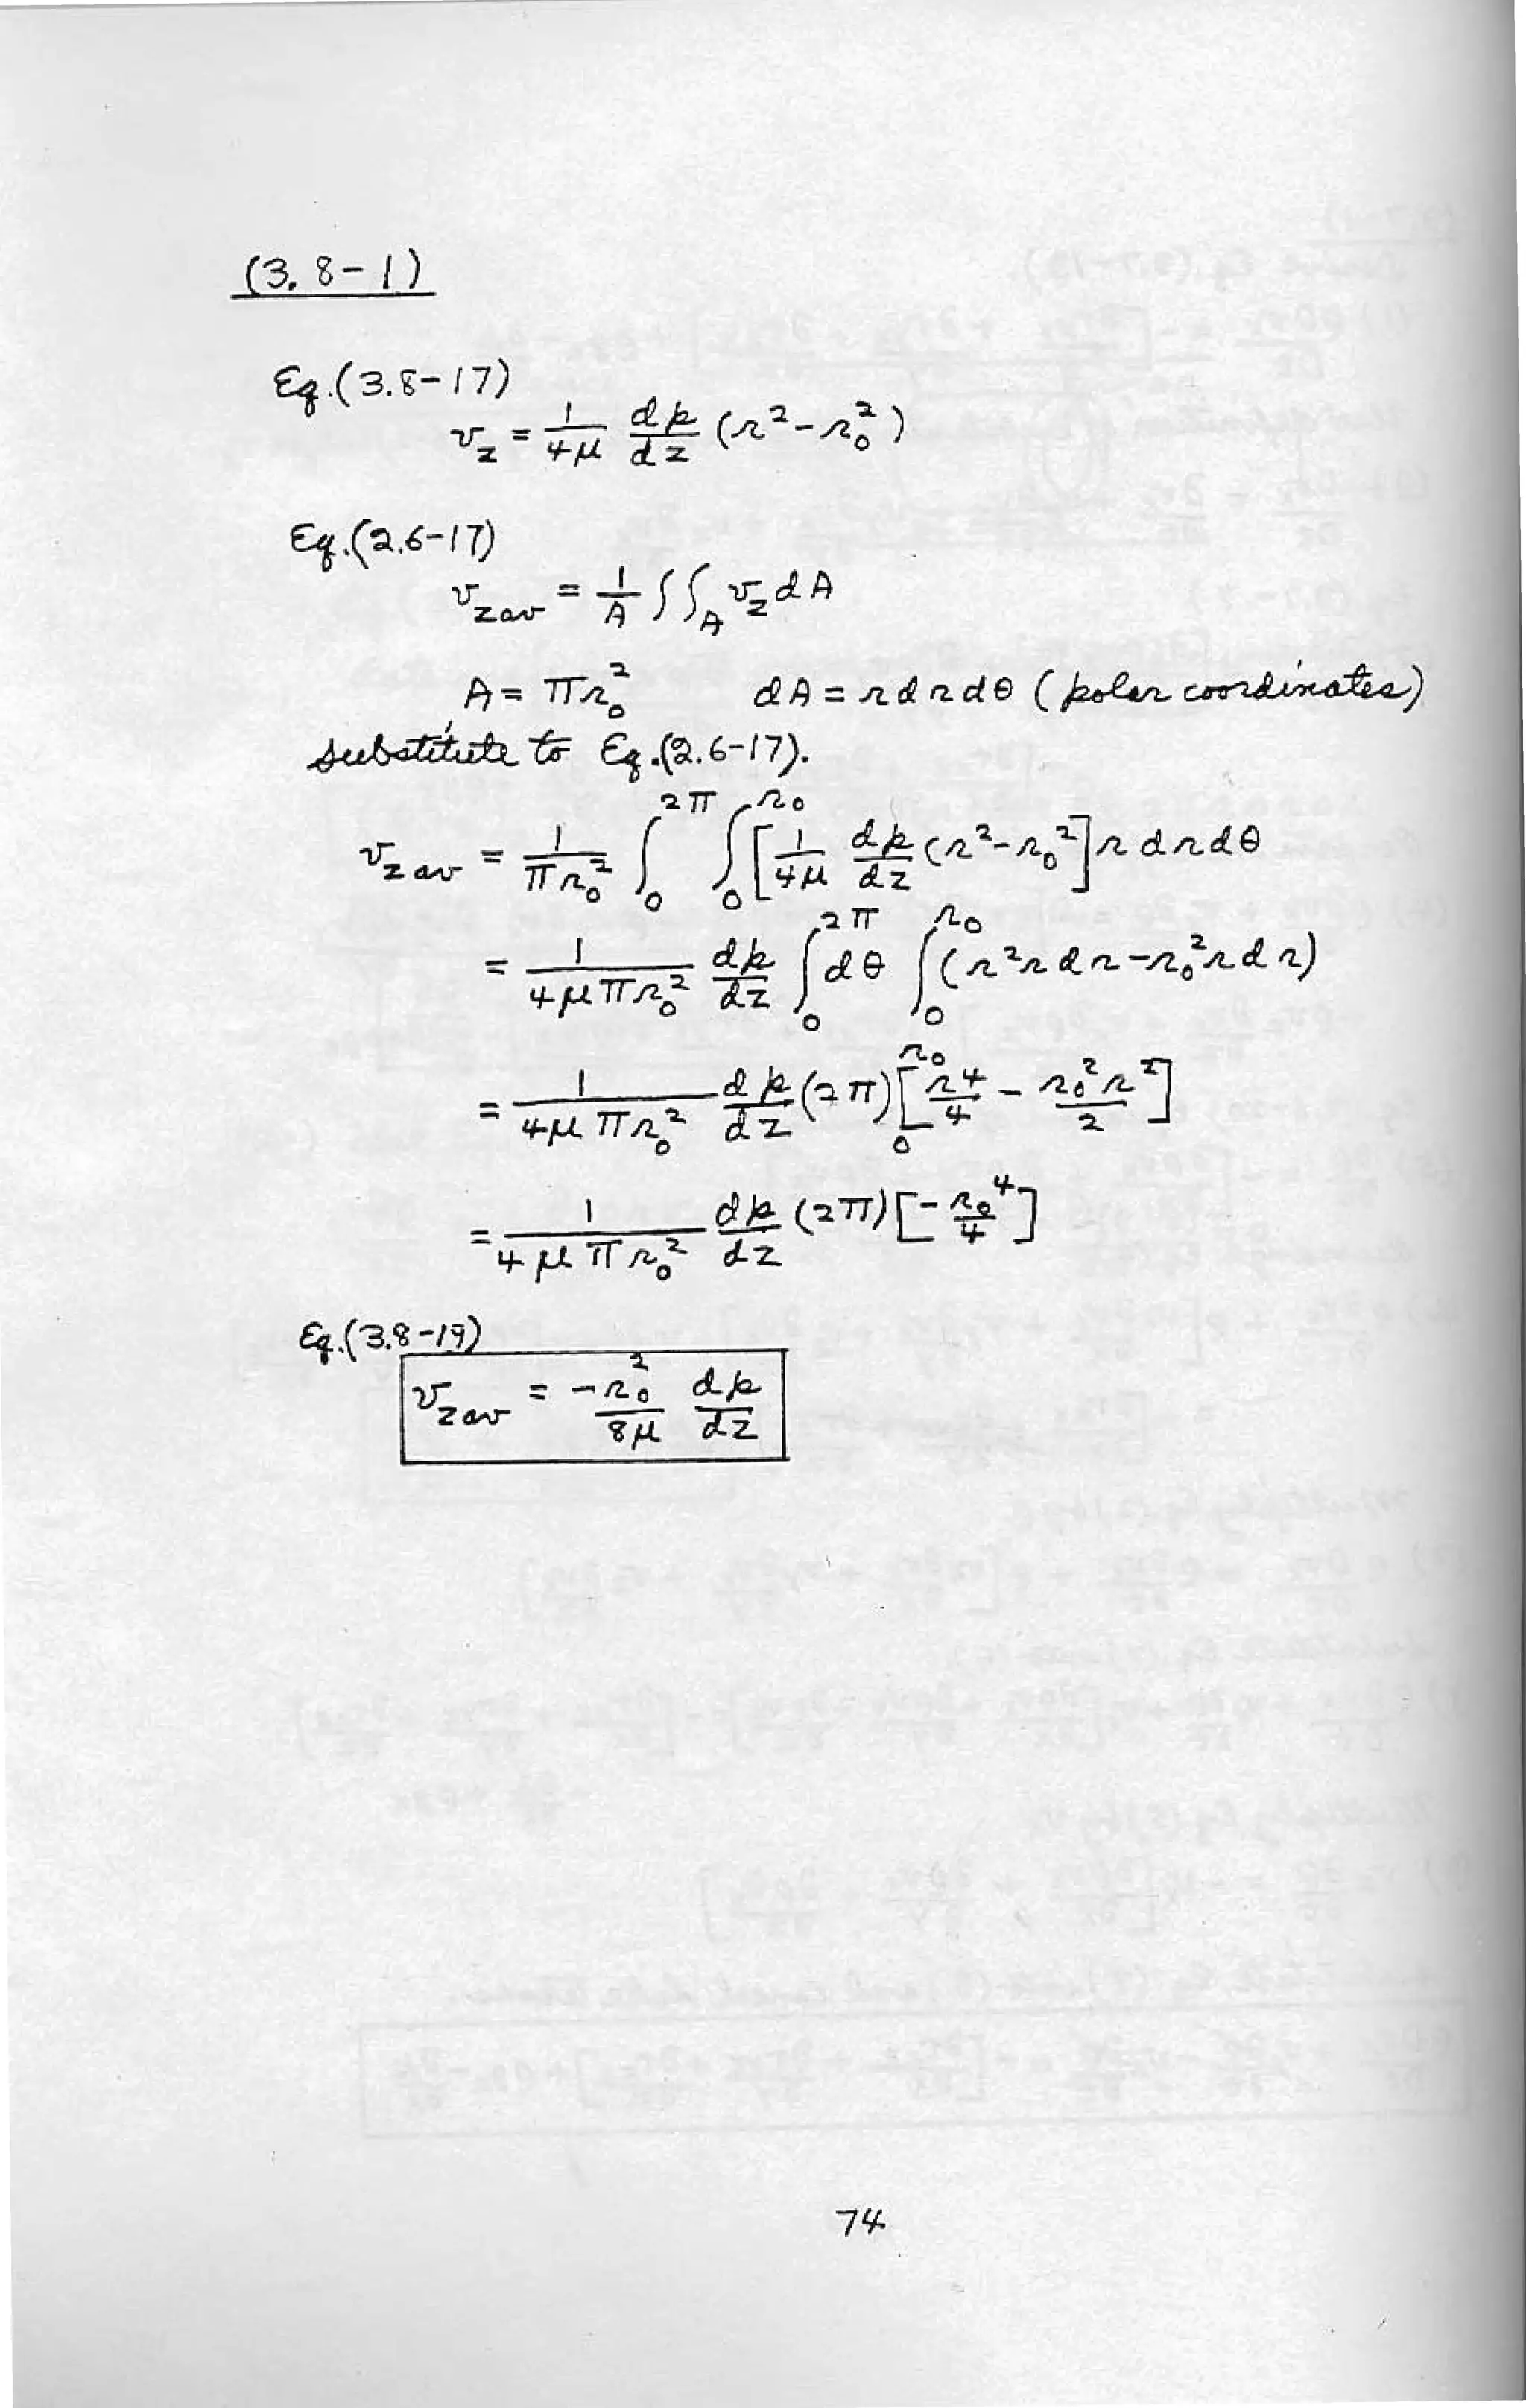 (3.8-1)
Eq.(3.8-17)
v_z = 1/4μ dp/dz (r²-r₀²)
Eq.(2.6-17)
v_zav = 1/A ∫∫_A v_z dA
A = πr₀² dA = r dr dθ (polar coordinates)
substitute to Eq.(2.6-17).
v_zav = 1/πr₀² ∫₀^2π ∫₀^r₀ [1/4μ dp/dz (r²-r₀²] r dr dθ
= 1/4μπr₀² dp/dz ∫₀^2π dθ ∫₀^r₀ (r² r dr - r₀² r dr)
= 1/4μπr₀² dp/dz (2π) ₀^r₀[r⁴/4 - r₀²r²/2]
= 1/4μπr₀² dp/dz (2π) [-r₀⁴/4]
Eq.(3.8-19)
v_zav = -r₀²/8μ dp/dz
74